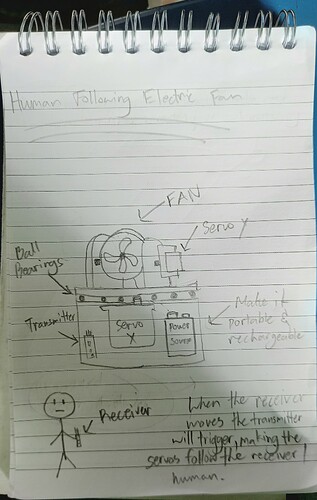 Human Following Electric Fan
FAN
Servo Y
Ball
Bearings
Transmitter
Servo
X
Power
Source
Make it
portable &
rechargeable
Receiver
When the receiver
moves the transmitter
will trigger, making the
servos follow the receiver /
human.